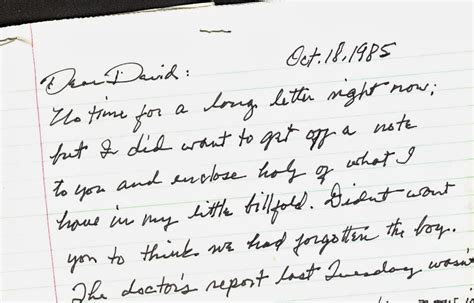 Oct. 18, 1985
Dear David:
No time for a long letter right now;
but I did want to get off a note
to you and enclose holy of what I
have in my little billfold. Didnt want
you to think we had forgotten the boy.
The doctor's report last Tuesday wasn't